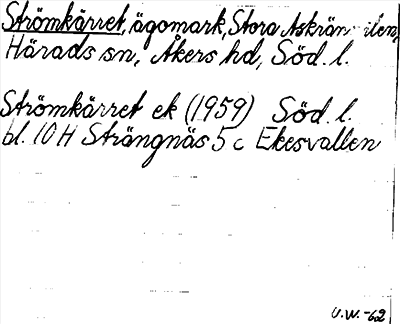 Strömkärret, ägomark, Stora
Härads sn, Åkers hd, Söd. l.
Strömkärret ek (1959) Söd. l.
bl. 10 H Strängnäs 5 c Ekesvallen
U.W. -62